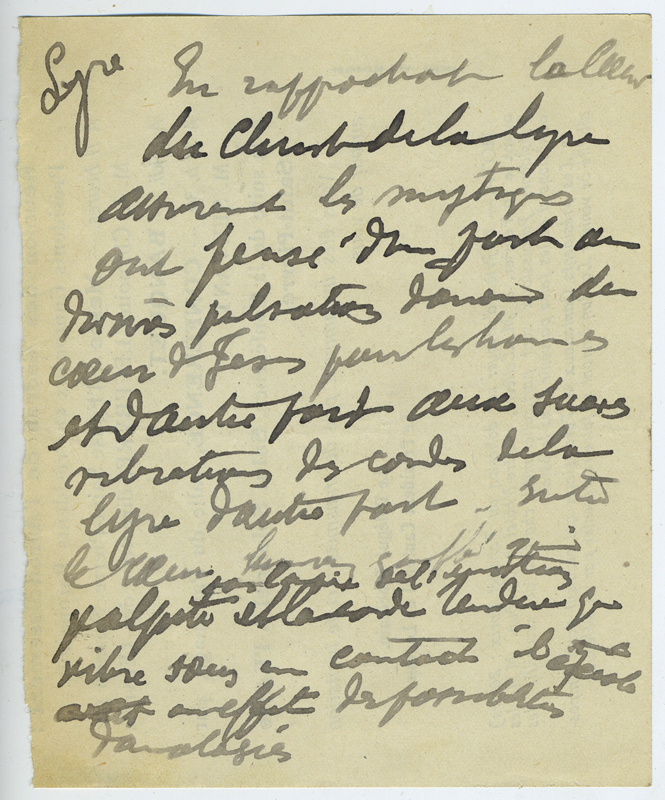 Lyre En rapprochant le Cœur
du Christ de la lyre
assurent les mystiques
ont pensé d'une part aux
divines pulsations d'amour du
cœur d Jesus pour les hommes
et d'autre part aux suaves
vibrations des cordes de la
lyre d'autre part. Entre
le cœur humain gonflé qui
par la joie de l'émotion
palpite et la corde tendue qui
vibre sous un contact il y a
en effet des possibilités
d'analogies